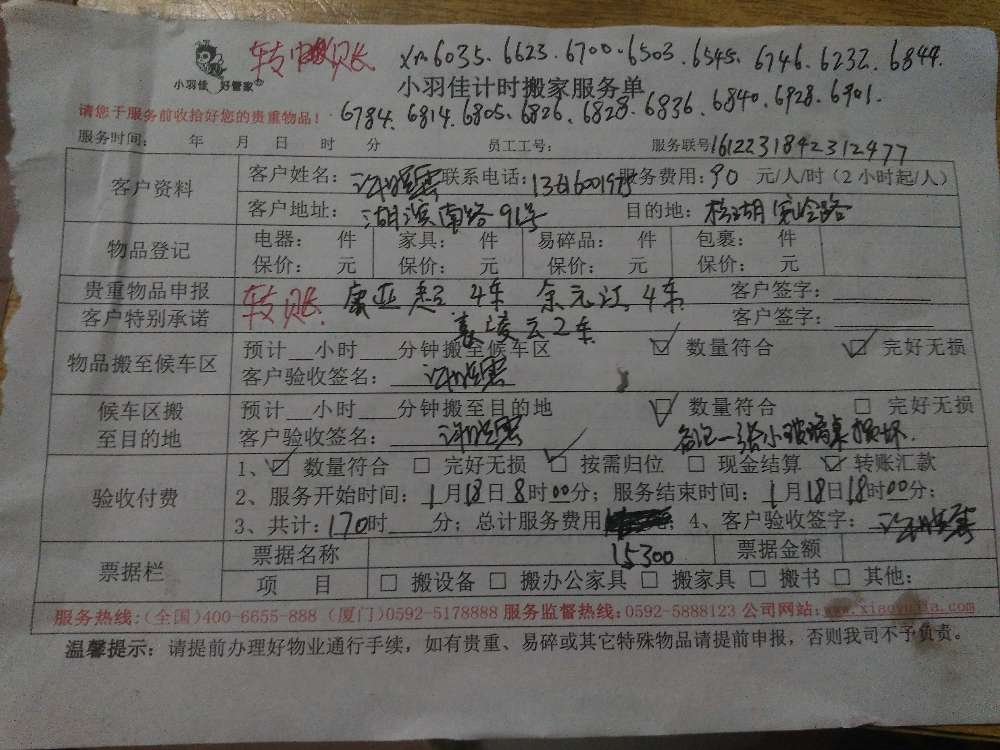 转账 XM6035、6623、6700、6503、6545、6746、6232、6844
小羽佳 好管家
小羽佳计时搬家服务单
请您于服务前收拾好您的贵重物品！ 6784、6814、6805、6826、6828、6836、6840、6928、6901.
服务时间： 年 月 日 时 分 员工工号： 服务联号1612231842312477
客户资料 客户姓名： 联系电话： 服务费用：90 元/人/时（2小时起/人）
客户地址：湖滨南路91号 目的地：
物品登记 电器： 件 家具： 件 易碎品： 件 包裹： 件
保价： 元 保价： 元 保价： 元 保价： 元
贵重物品申报 转账 康亚超 4车 余元江 4车 客户签字：
客户特别承诺 凌云2车 客户签字：
物品搬至候车区 预计__小时___分钟搬至候车区 ☑ 数量符合 ☑ 完好无损
客户验收签名：
候车区搬至目的地 预计__小时___分钟搬至目的地 ☑ 数量符合 □ 完好无损
客户验收签名： 备记一张小玻璃桌损坏.
验收付费 1、☑ 数量符合 □ 完好无损 ☑ 按需归位 □ 现金结算 ☑ 转账汇款
2、服务开始时间：1月18日8时00分；服务结束时间：1月18日18时00分；
3、共计：170时____分；总计服务费用 ；4、客户验收签字：
票据栏 票据名称 15300 票据金额
项 目 □ 搬设备 □ 搬办公家具 □ 搬家具 □ 搬书 □ 其他：
服务热线：(全国)400-6655-888 (厦门)0592-5178888 服务监督热线：0592-5888123 公司网站：www.xiaoyujia.com
温馨提示：请提前办理好物业通行手续，如有贵重、易碎或其它特殊物品请提前申报，否则我司不予负责。